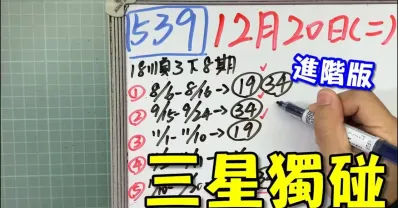 539 12月20日(二)
進階版
18順3下8期
① 8/6-8/16→19 34
② 9/15-9/24→34
③ 11/1-11/10→19
④
⑤
三星獨碰